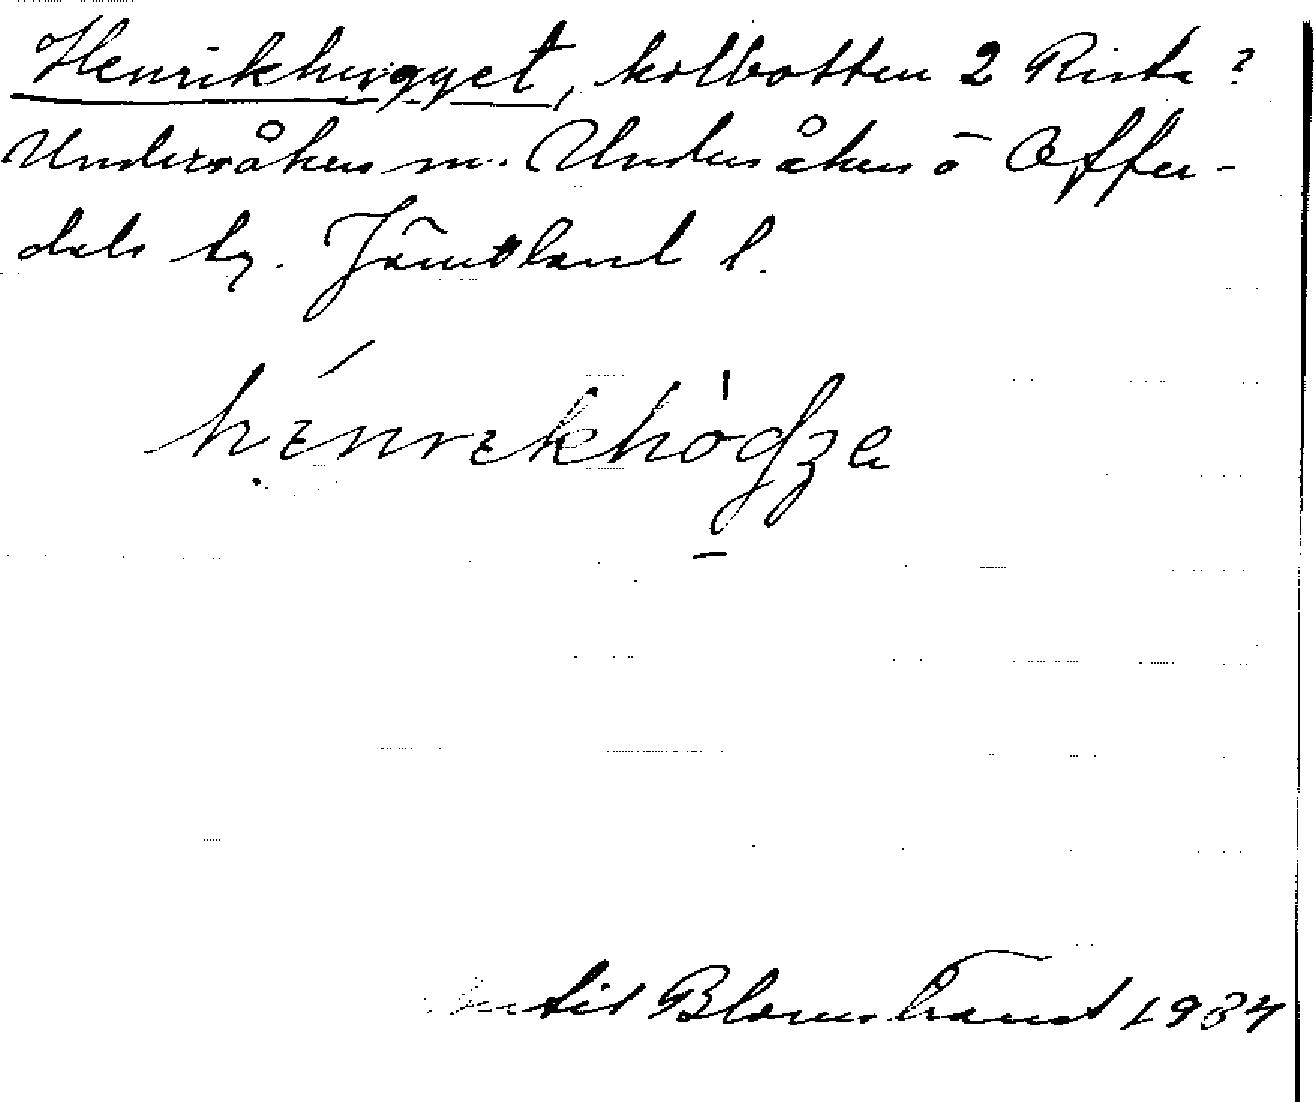 Henrikhugget, kolbotten 2 Rista?
Undersåkers sn. Undersåkers o Offer-
dals tg. Jämtland l.
hénrekhògʒa
Bertil Blomstrand 1934